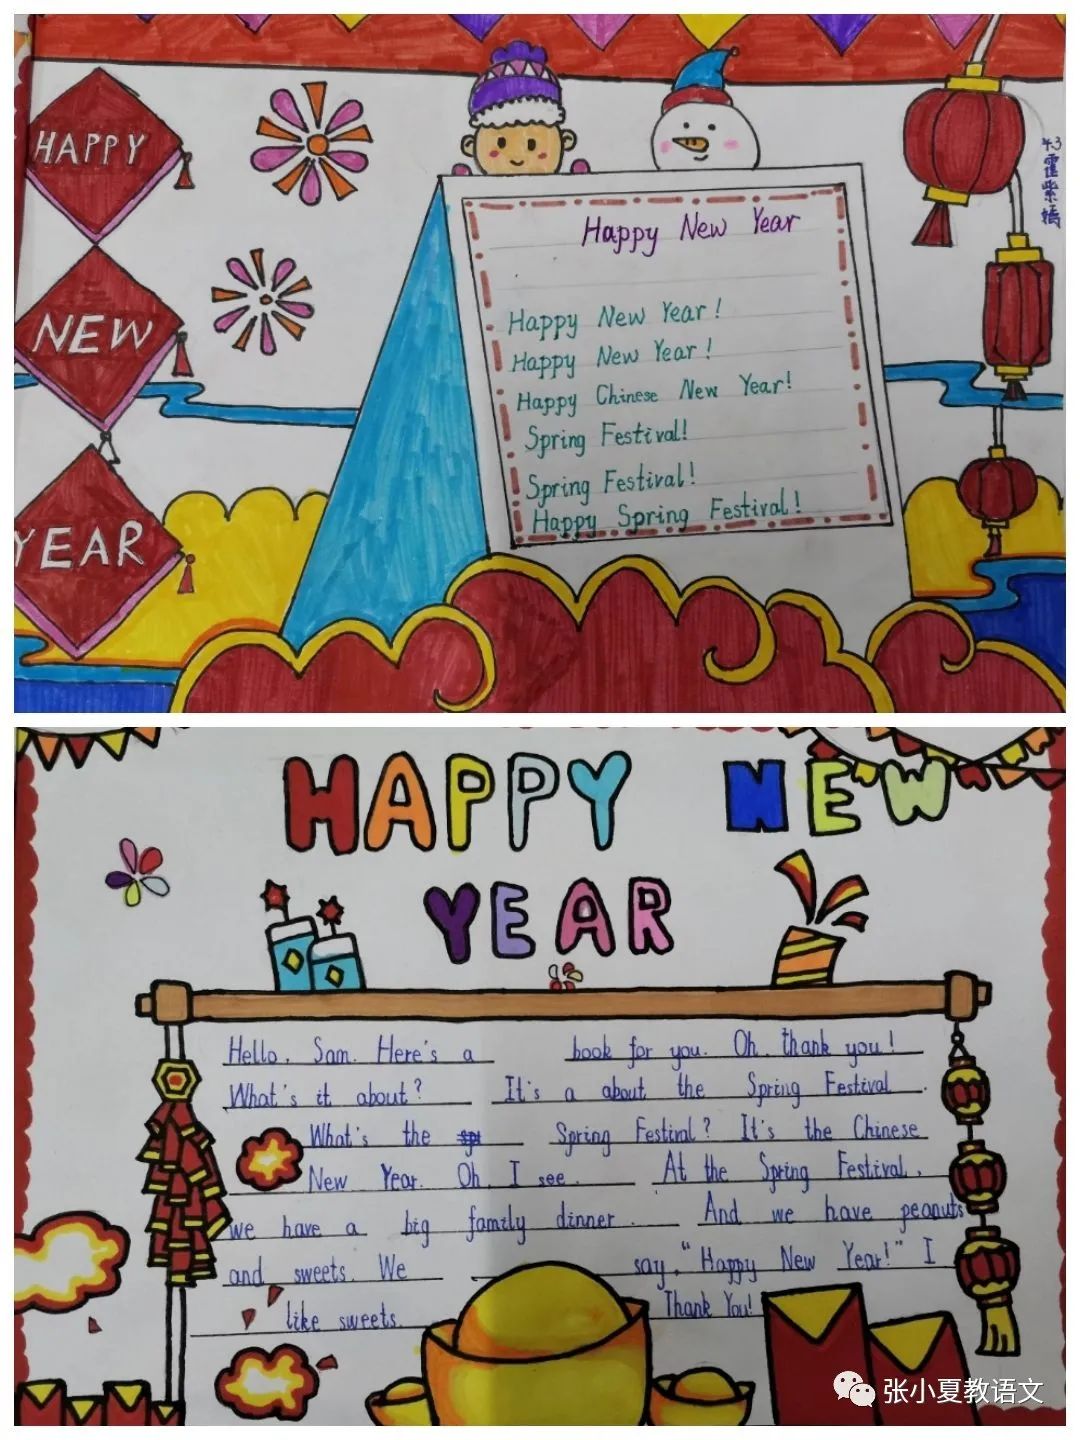 HAPPY
NEW
YEAR
Happy New Year
Happy New Year!
Happy New Year!
Happy Chinese New Year!
Spring Festival!
Spring Festival!
Happy Spring Festival!
43 霍紫嫣
HAPPY NEW
YEAR
Hello, Sam. Here's a book for you. Oh, thank you!
What's it about? It's a about the Spring Festival.
What's the Spring Festival? It's the Chinese
New Year. Oh, I see. At the Spring Festival,
we have a big family dinner. And we have peanuts
and sweets. We say, "Happy New Year!" I
like sweets. Thank You!
张小夏教语文